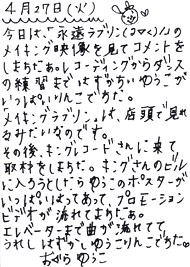 4月27日(火)
今日は、「永遠ラブリン(コマく)」の
メイキング映像を見てコメントを
しましたぁ。レコーディングからダンス
の練習まではずかちぃゆうこが
いっぱいりんこでちた。
メイキング"ラブリン"は、店頭で見れ
るみたいなのです。
その後、キングレコードさんに来て
取材をしました。キングさんのビル
に入ろうとしたらゆうこのポスターが
いっぱいはってあって、プロモーション
ビデオが流れてましたぁ。
エレベーターまで曲が流れてて
うれしはずかしゆうこりんでちた。
おぐらゆうこ